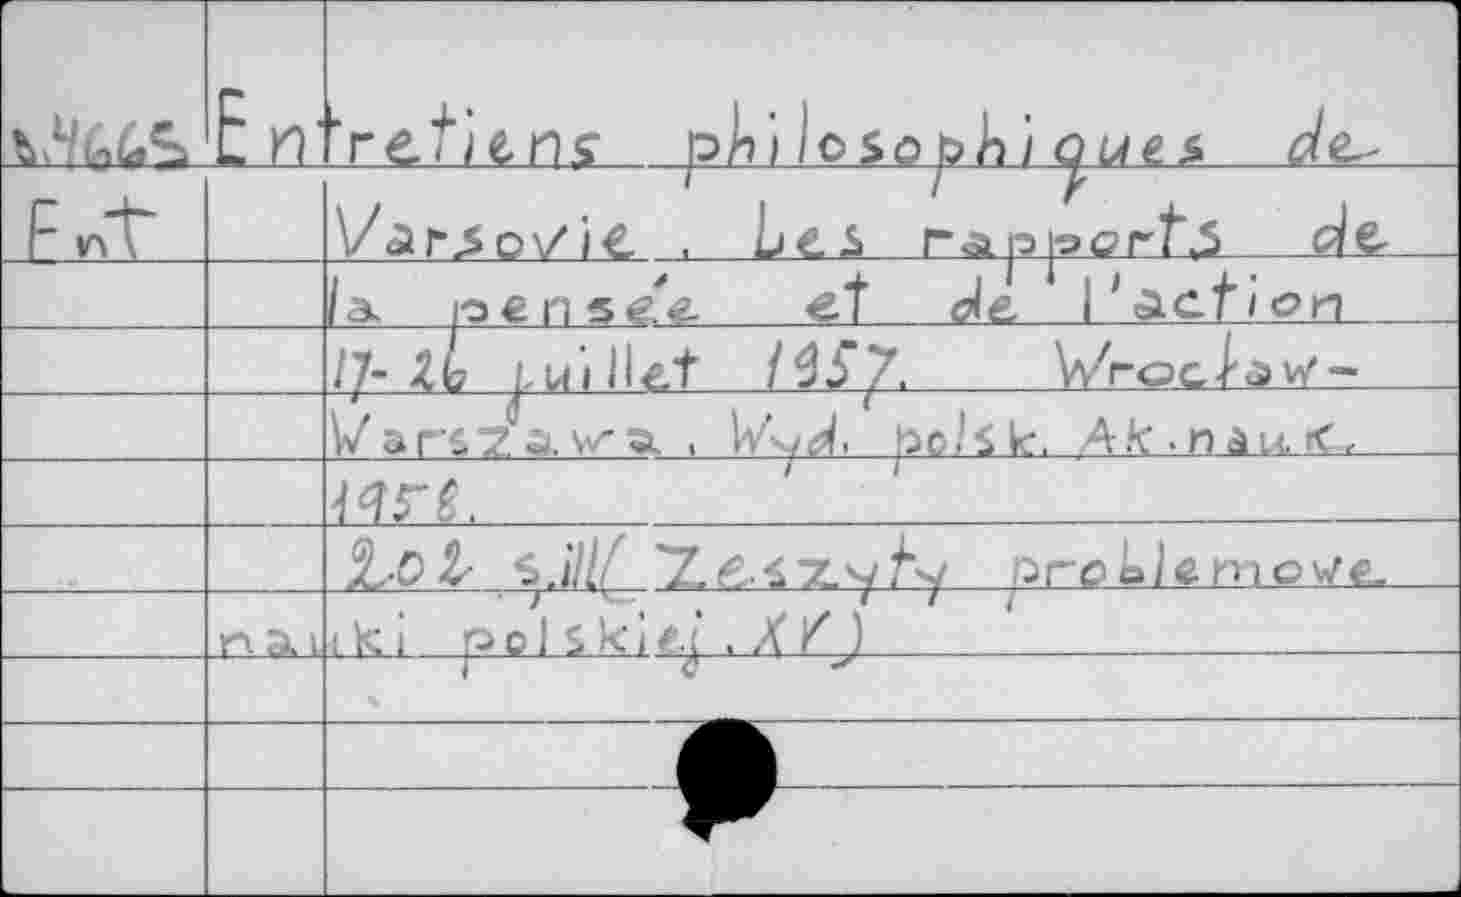 Entretiens philosophiques de
Ent Varsovie. Les rapports de
la pensée et de l'action
17-26 juillet 1957. Wrocław-
Warszawa, Wyd. polsk. Ak. nauk,
1958.
202 s. Zeszyty problemowe
nauki polskiej. XV)